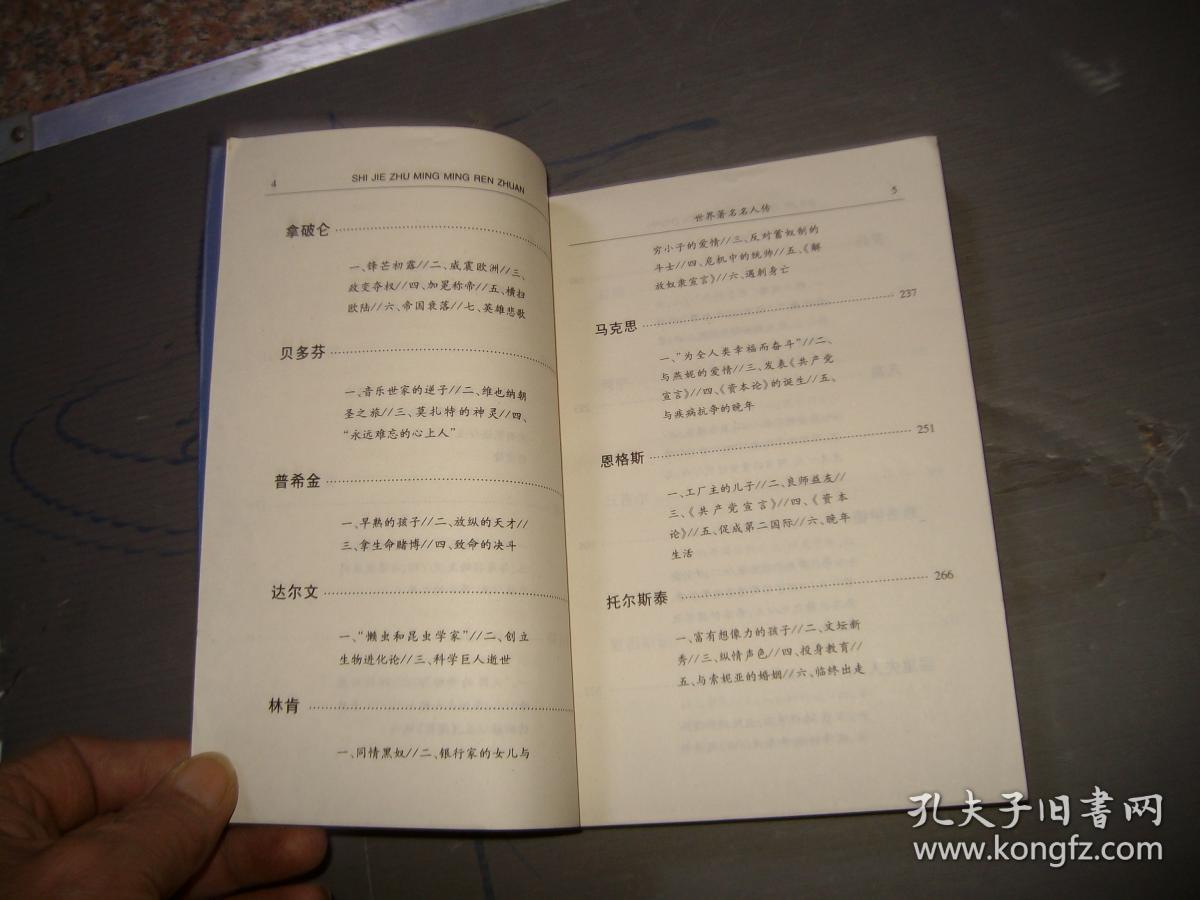 4
SHI JIE ZHU MING MING REN ZHUAN
拿破仑
一、锋芒初露//二、威震欧洲//三、
政变夺权//四、加冕称帝//五、横扫
欧陆//六、帝国衰落//七、英雄悲歌
贝多芬
一、音乐世家的逆子//二、维也纳朝
圣之旅//三、莫扎特的神灵//四、
“永远难忘的心上人”
普希金
一、早熟的孩子//二、放纵的天才//
三、拿生命赌博//四、致命的决斗
达尔文
一、“懒虫和昆虫学家”//二、创立
生物进化论//三、科学巨人逝世
林肯
一、同情黑奴//二、银行家的女儿与
世界著名名人传
5
穷小子的爱情//三、反对蓄奴制的
斗士//四、危机中的统帅//五、《解
放奴隶宣言》//六、遇刺身亡
马克思 237
一、“为全人类幸福而奋斗”//二、
与燕妮的爱情//三、发表《共产党
宣言》//四、《资本论》的诞生//五、
与疾病抗争的晚年
恩格斯 251
一、工厂主的儿子//二、良师益友//
三、《共产党宣言》//四、《资本
论》//五、促成第二国际//六、晚年
生活
托尔斯泰 266
一、富有想像力的孩子//二、文坛新
秀//三、纵情声色//四、投身教育//
五、与索妮亚的婚姻//六、临终出走
孔夫子旧书网
www.kongfz.com